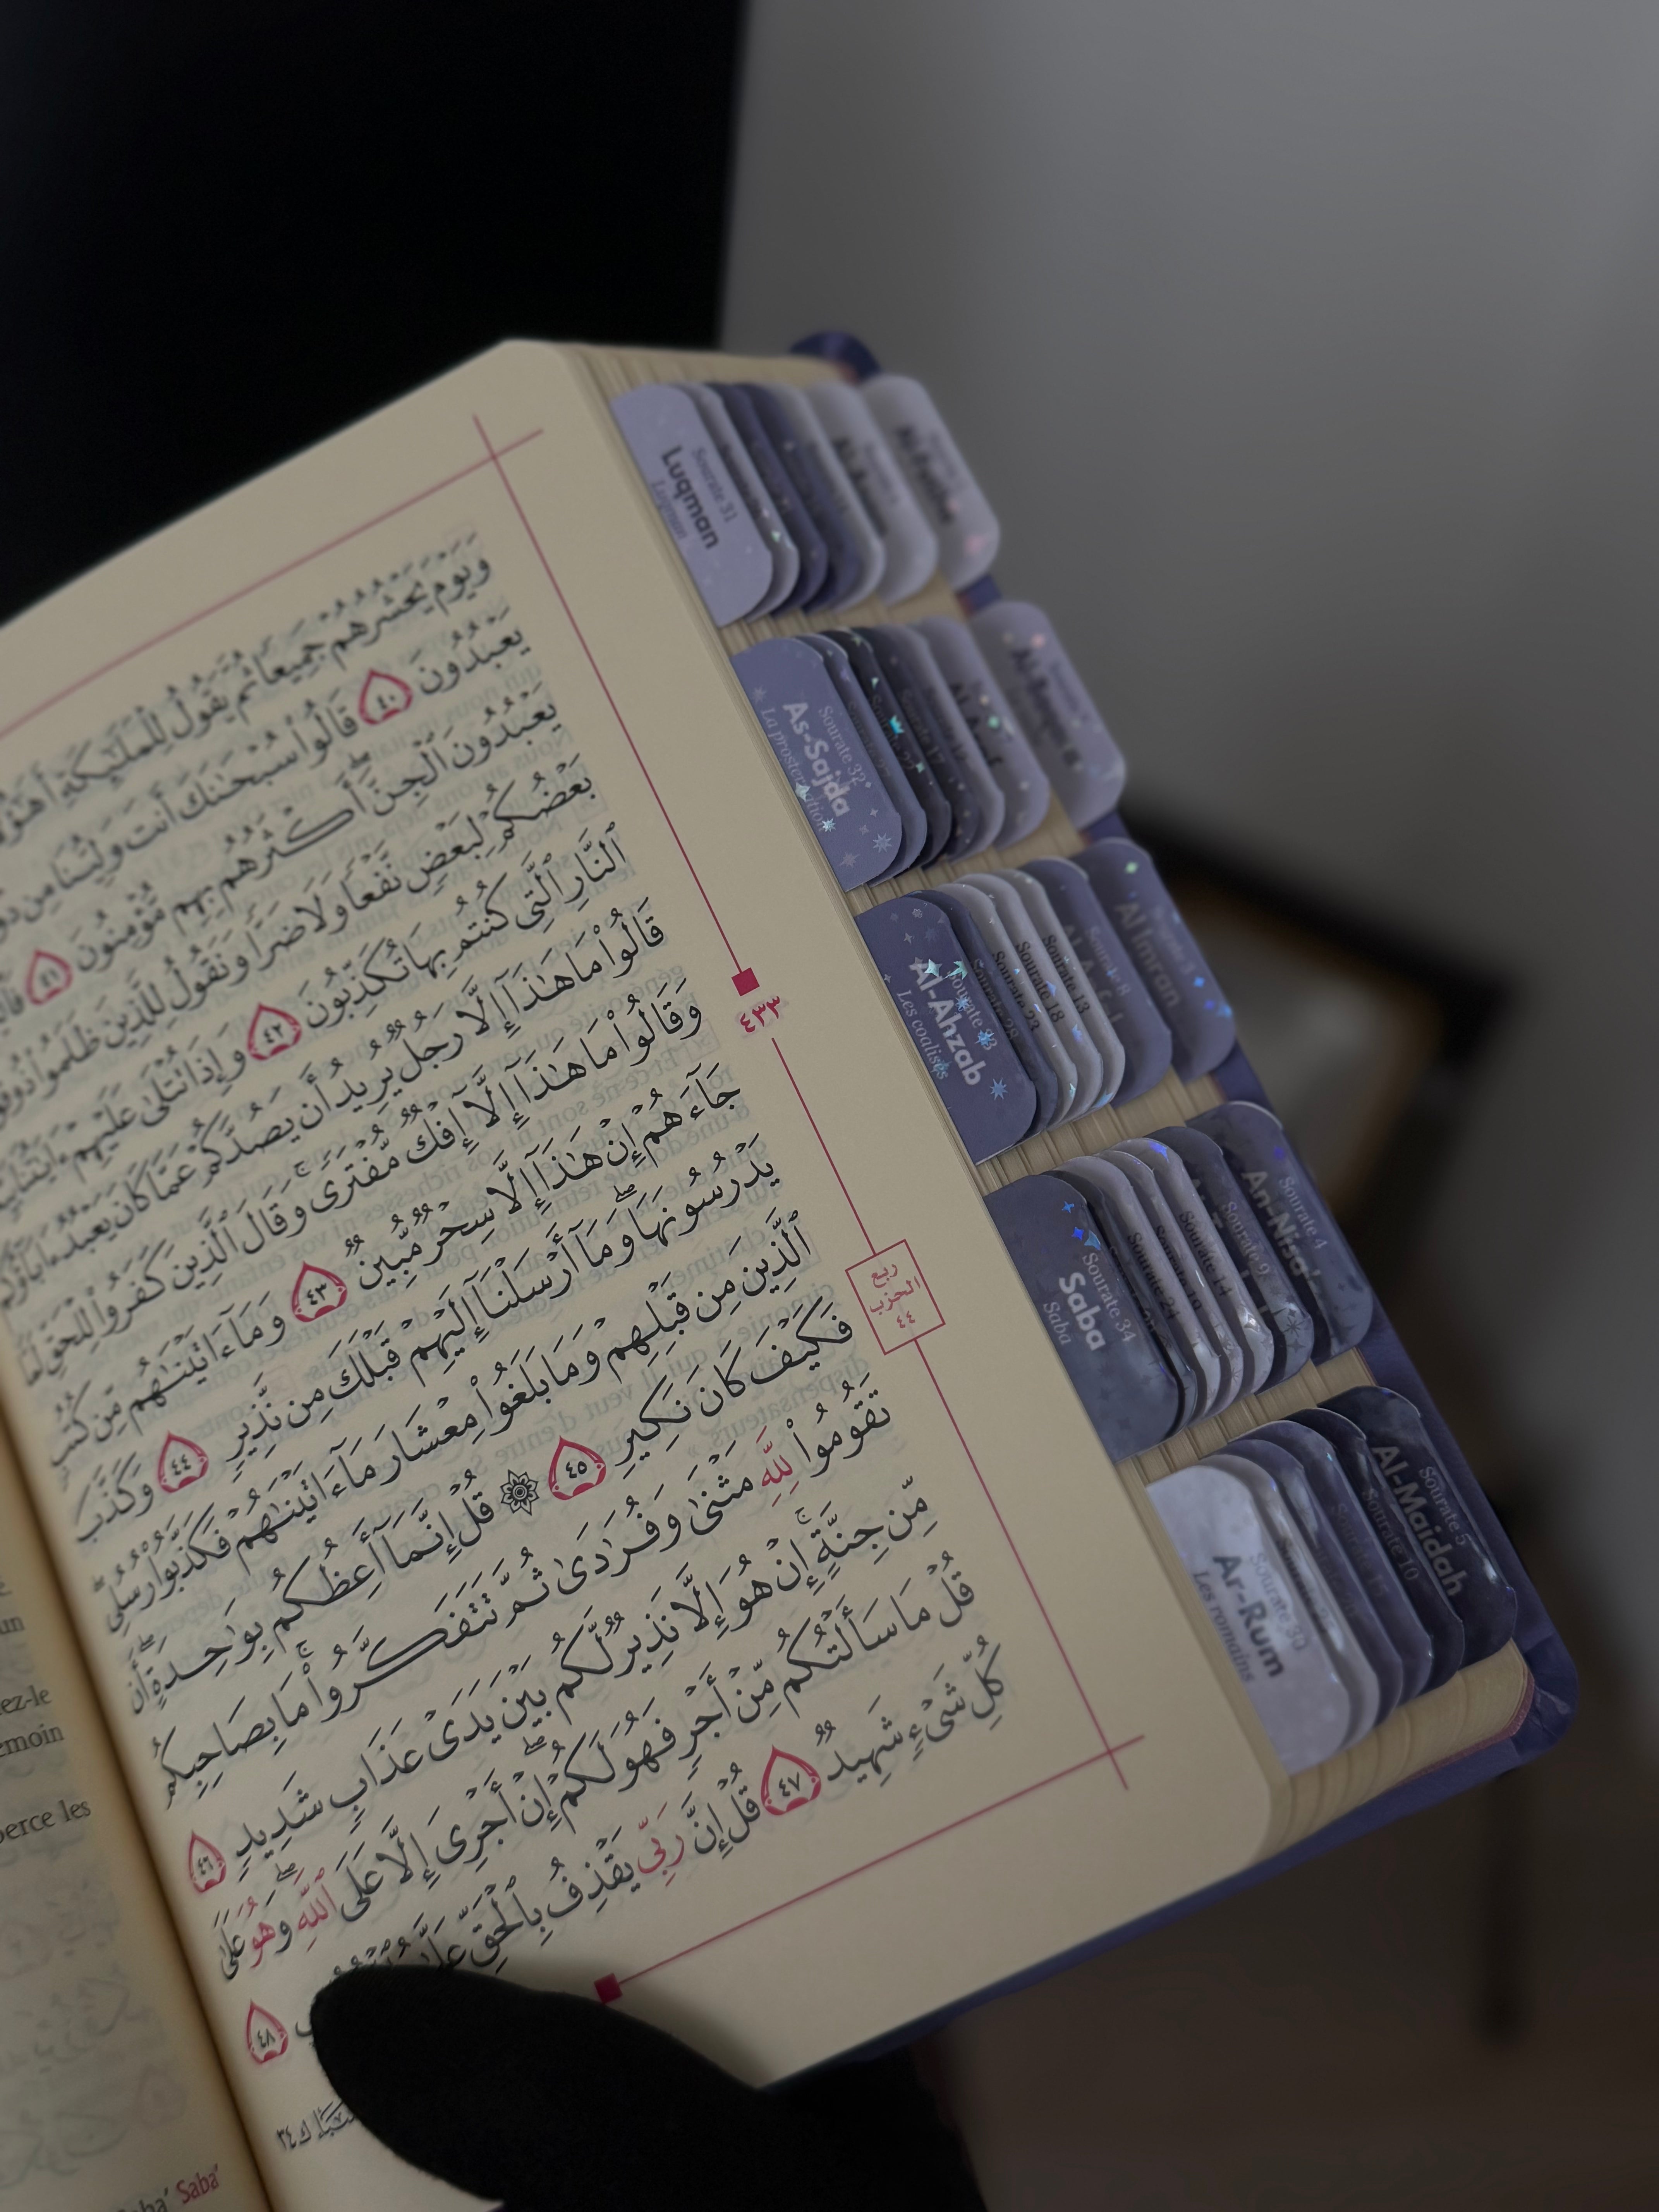 وَيَوْمَ يَحْشُرُهُمْ جَمِيعًا ثُمَّ يَقُولُ لِلْمَلَٰٓئِكَةِ
يَعْبُدُونَ ٤٠ قَالُوا۟ سُبْحَٰنَكَ أَنتَ وَلِيُّنَا مِن
يَعْبُدُونَ ٱلْجِنَّ ۖ أَكْثَرُهُم بِهِم مُّؤْمِنُونَ ٤١
بَعْضُكُمْ لِبَعْضٍ نَّفْعًا وَلَا ضَرًّا وَنَقُولُ لِلَّذِينَ ظَلَمُوا۟
ٱلنَّارِ ٱلَّتِى كُنتُم بِهَا تُكَذِّبُونَ ٤٢ وَإِذَا تُتْلَىٰ عَلَيْهِمْ ءَايَٰتُنَا
قَالُوا۟ مَا هَٰذَآ إِلَّا رَجُلٌ يُرِيدُ أَن يَصُدَّكُمْ عَمَّا كَانَ يَعْبُدُ ءَابَآؤُكُمْ
وَقَالُوا۟ مَا هَٰذَآ إِلَّآ إِفْكٌ مُّفْتَرًى ۚ وَقَالَ ٱلَّذِينَ كَفَرُوا۟ لِلْحَقِّ لَمَّا
جَآءَهُمْ إِنْ هَٰذَآ إِلَّا سِحْرٌ مُّبِينٌ ٤٣ وَمَآ ءَاتَيْنَٰهُم مِّن كُتُبٍ
يَدْرُسُونَهَا ۖ وَمَآ أَرْسَلْنَآ إِلَيْهِمْ قَبْلَكَ مِن نَّذِيرٍ ٤٤ وَكَذَّبَ
ٱلَّذِينَ مِن قَبْلِهِمْ وَمَا بَلَغُوا۟ مِعْشَارَ مَآ ءَاتَيْنَٰهُمْ فَكَذَّبُوا۟ رُسُلِى ۖ
فَكَيْفَ كَانَ نَكِيرِ ٤٥ ۞ قُلْ إِنَّمَآ أَعِظُكُم بِوَٰحِدَةٍ ۖ أَن
تَقُومُوا۟ لِلَّهِ مَثْنَىٰ وَفُرَٰدَىٰ ثُمَّ تَتَفَكَّرُوا۟ ۚ مَا بِصَاحِبِكُم
مِّن جِنَّةٍ ۚ إِنْ هُوَ إِلَّا نَذِيرٌ لَّكُم بَيْنَ يَدَىْ عَذَابٍ شَدِيدٍ ٤٦
قُلْ مَا سَأَلْتُكُم مِّنْ أَجْرٍ فَهُوَ لَكُمْ ۖ إِنْ أَجْرِىَ إِلَّا عَلَى ٱللَّهِ ۖ وَهُوَ عَلَىٰ
كُلِّ شَىْءٍ شَهِيدٌ ٤٧ قُلْ إِنَّ رَبِّى يَقْذِفُ بِٱلْحَقِّ
٤٨
٤٣٣
ربع
الحزب
٤٤
٣٤
ez-le
emoin
perce les
Saba'
Sourate 31
Luqman
Luqman
Sourate 32
As-Sajda
La prosternation
Sourate 33
Al-Ahzab
Les coalisés
Sourate 34
Saba
Saba
Sourate 30
Ar-Rum
Les romains
Sourate 23
Sourate 18
Sourate 13
Sourate 8
Al Imran
Sourate 24
Sourate 14
Sourate 9
Sourate 4
An-Nisa'
Sourate 10
Sourate 5
Al-Maidah